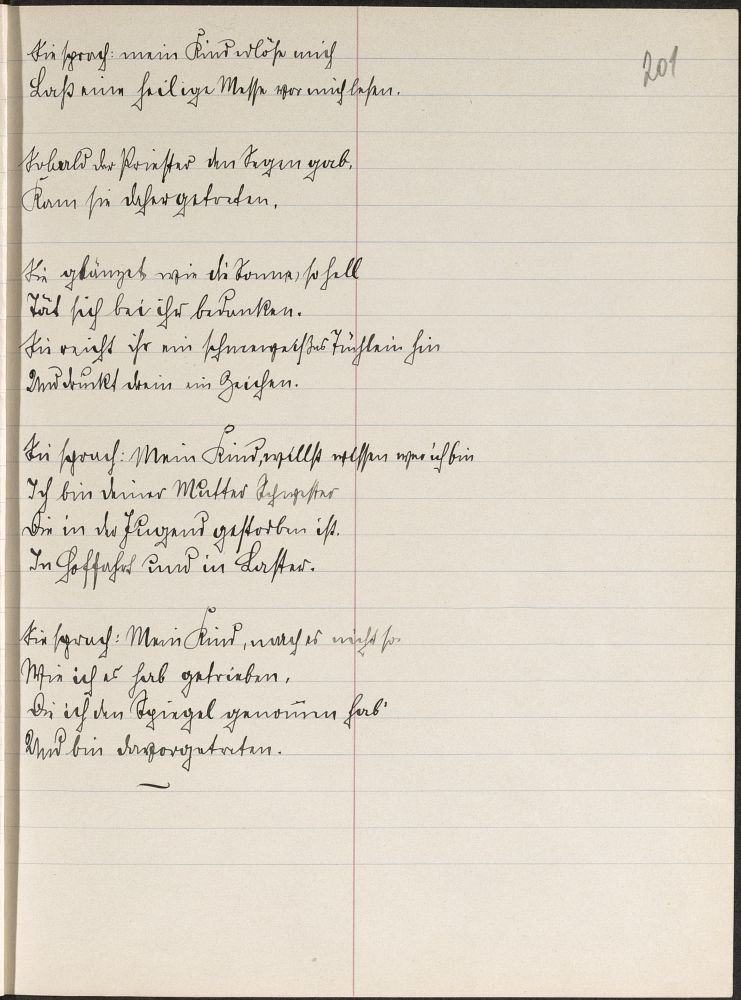 201
Sie sprach: mein Kind erlöse mich
Laß eine heilige Messe vor mich lesen.
Sobald der Priester den Segen gab,
Kam sie dahergetreten.
Sie glänzet wie die Sonne, so hell
Tät sich bei ihr bedanken.
Sie reicht ihr ein schneeweißes Tüchlein hin
Und druckt drein ein Zeichen.
Sie sprach: Mein Kind, willst wissen wer ich bin
Ich bin deiner Mutter Schwester
Die in der Jugend gestorben ist.
In Hoffahrt und in Laster.
Sie sprach: Mein Kind, mach es nicht so
Wie ich es hab getrieben,
Die ich den Spiegel genom̄en hab'
Und bin davorgetreten.